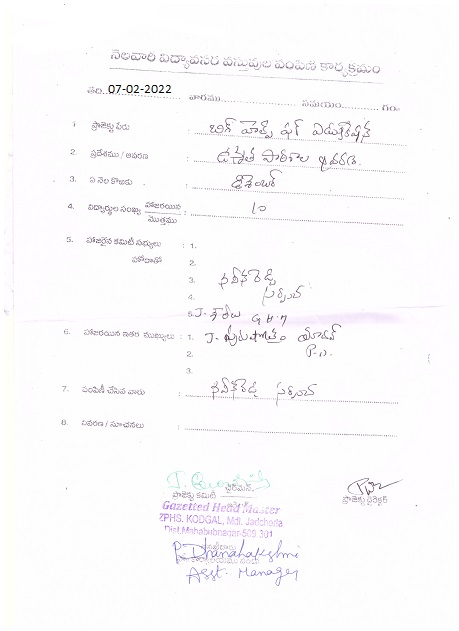 నెలవారి విద్యావసర వస్తువుల పంపిణి కార్యక్రమం
తేది. 07-02-2022 వారము సమయం గం.
1 ప్రాజెక్టు పేరు : బిగ్ హెల్ప్ ఫర్ ఎడ్యుకేషన్
2. ప్రదేశము / ఆవరణ : ఉన్నత పాఠశాల ఆవరణ.
3. ఏ నెల కొరకు : డిశెంబర్
4. విద్యార్థుల సంఖ్య హాజరయిన / మొత్తము : 10
5. హాజరైన కమిటీ సభ్యులు : 1.
హోదాతో 2.
3. నవీన్ రెడ్డి
4. సర్పంచ్
5. J. G.H.M
6. హాజరయిన ఇతర ముఖ్యులు : 1. J. పురుషోత్తం యాదవ్
2. P.D.
3.
7. పంపిణీ చేసిన వారు : నవీన్ రెడ్డి సర్పంచ్
8. వివరణ / సూచనలు :
ఛైర్మెన్,
ప్రాజెక్టు కమిటీ ప్రాజెక్టు డైరెక్టర్
Gazetted Head Master
ZPHS. KODGAL, Mdl. Jadcherla
Dist.Mahabubnagar-509 301
P. Dhanalakshmi
Asst. Manager